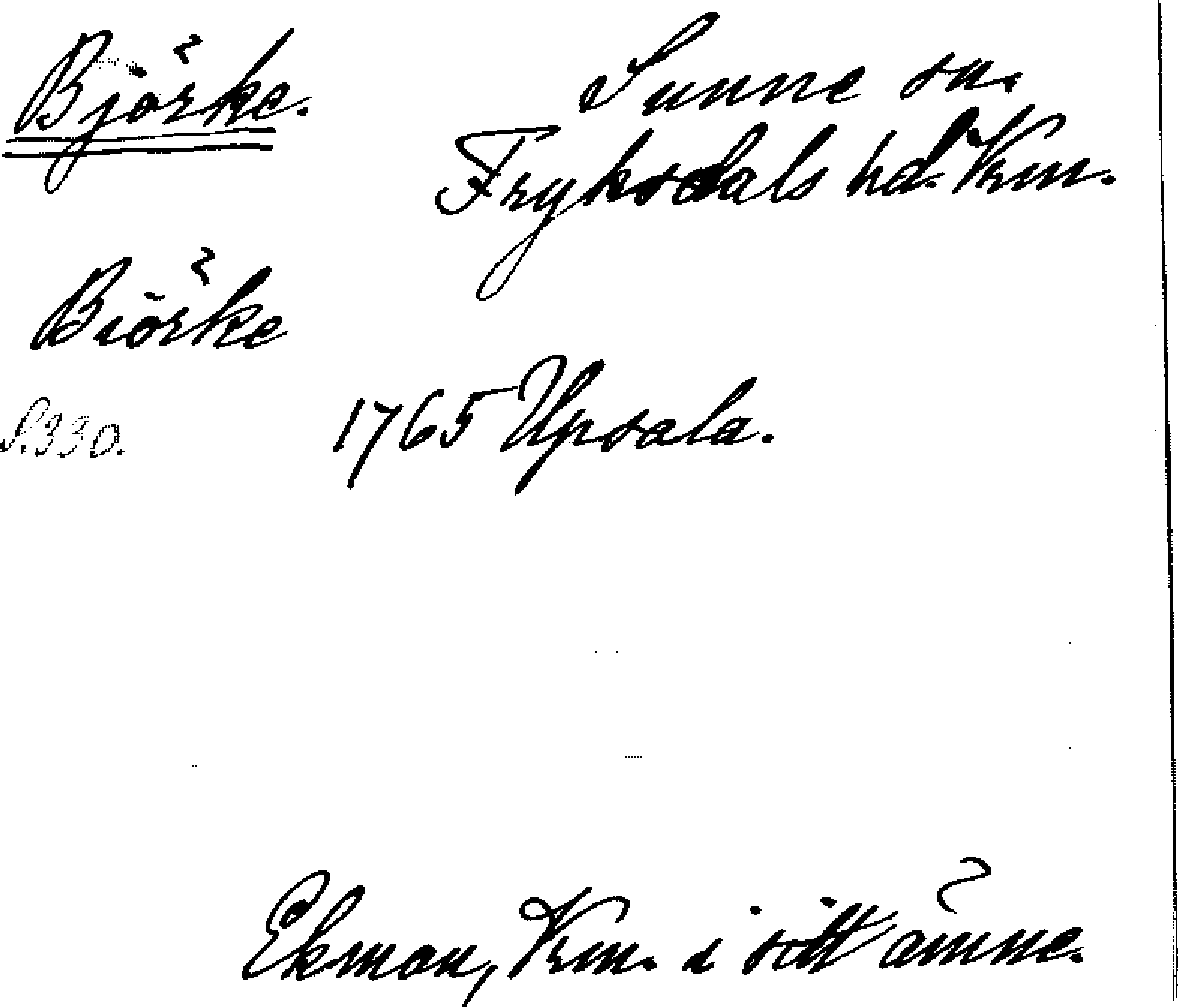 Björke.
Sunne sn.
Fryksdals hd. Vrm.
Biörke
S. 330.
1765 Upsala.
Ekman, Vrm. i sitt ämne.